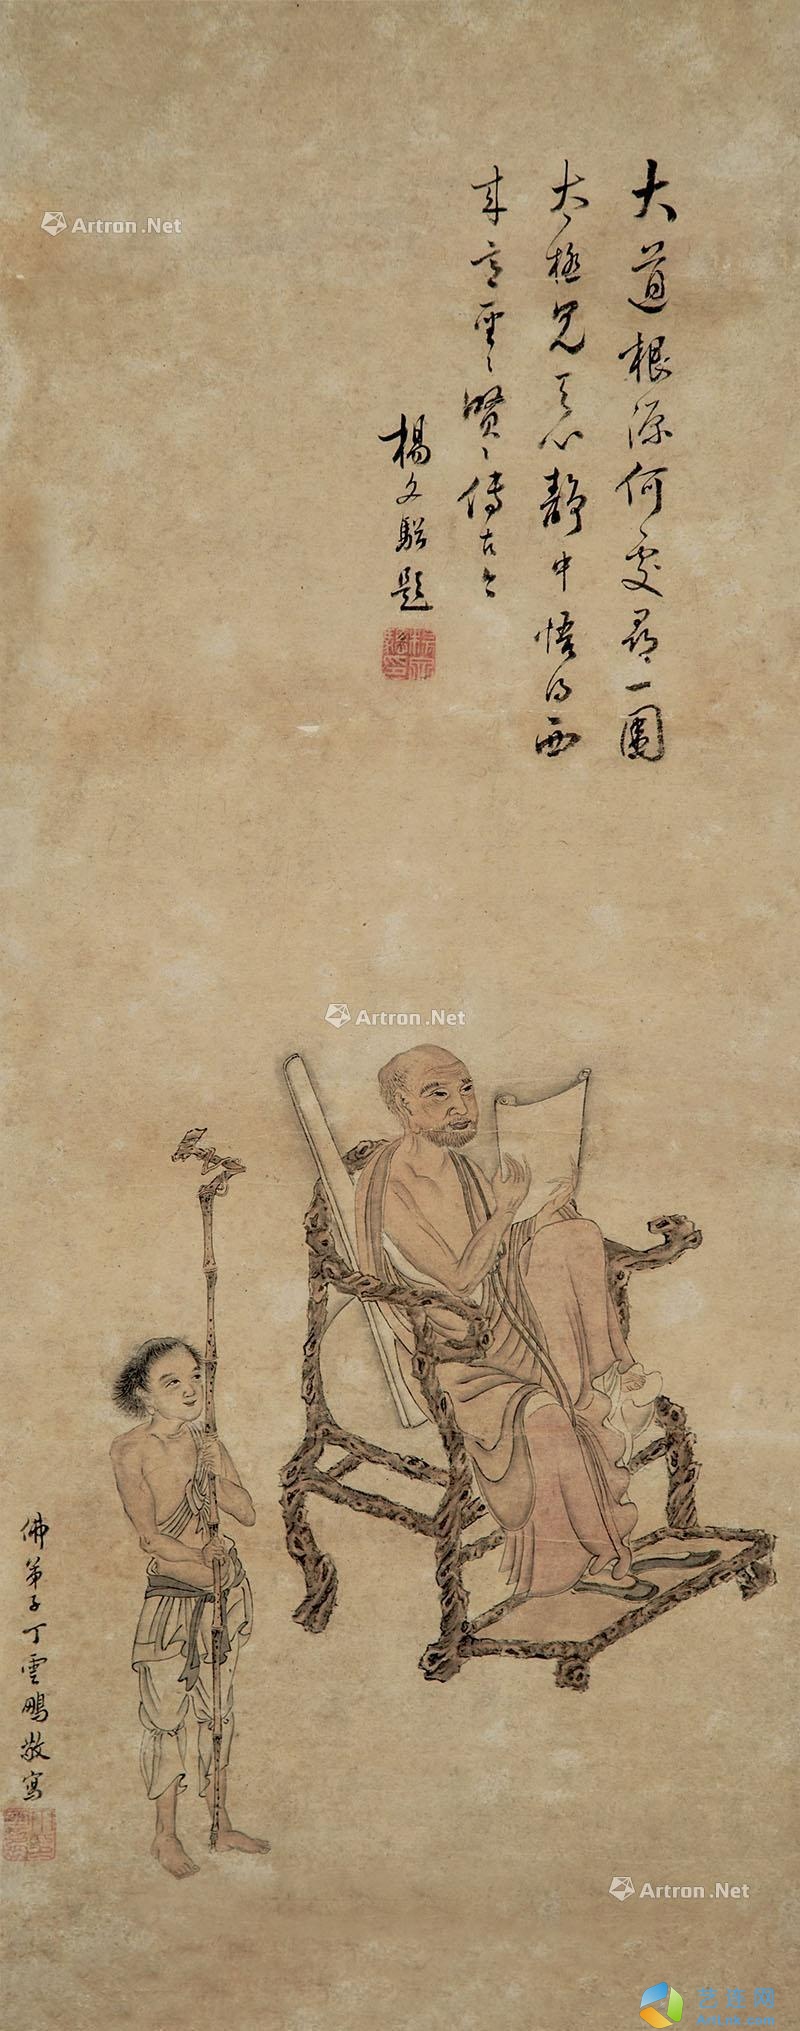 大道根源何處尋一團
太極見天心靜中悟得西
來意聖〻賢〻傳古今
楊文驄題
佛弟子丁雲鵬敬寫
Artron.Net
Artron.Net
Artron.Net